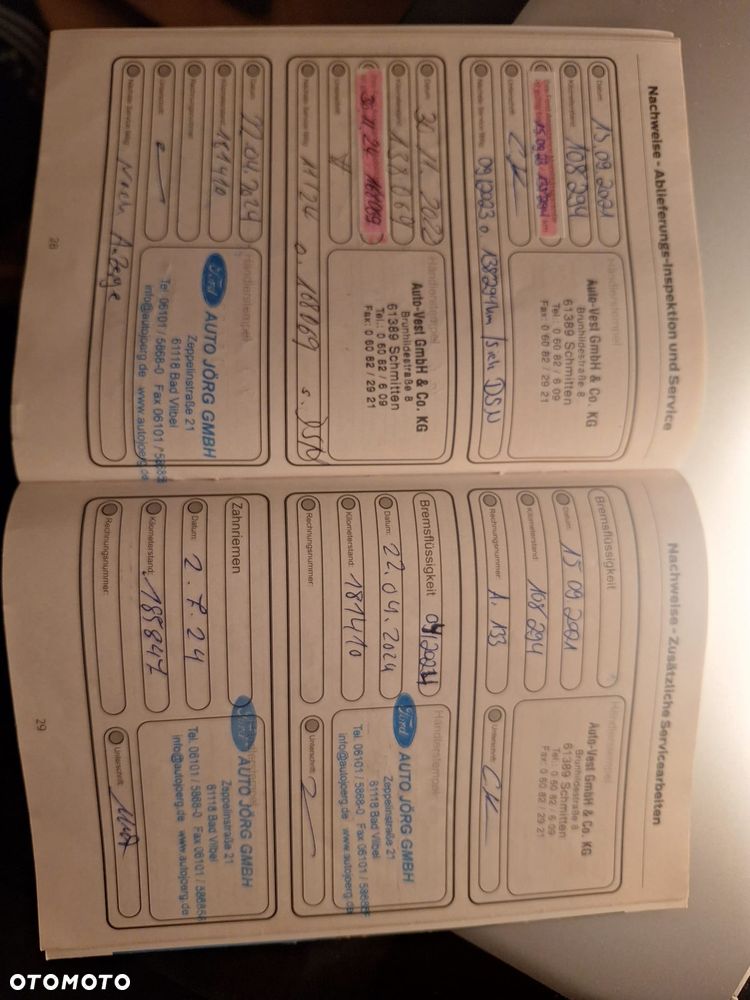 Nachweise - Ablieferungs-Inspektion und Service
Datum:
15.09.2021
Kilometerstand:
108294
15.09.23
Unterschrift:
CK
Nächster Service fällig:
09/2023 o 138294km / sieh DSN
Händlerstempel
Auto-Vest GmbH & Co. KG
Brunhildestraße 8
61389 Schmitten
Tel.: 0 60 82 / 6 09
Fax: 0 60 82 / 29 21
Datum:
30.11.2022
Kilometerstand:
138069
30.11.24 168069
Nächster Service fällig:
11/24 o. 168069 s. DSN
Händlerstempel
Auto-Vest GmbH & Co. KG
Brunhildestraße 8
61389 Schmitten
Tel.: 0 60 82 / 6 09
Fax: 0 60 82 / 29 21
Datum:
22.04.2024
Kilometerstand:
181410
Rechnungsnummer:
Unterschrift:
Nächster Service fällig:
Nach Anzeige
Händlerstempel
Ford
AUTO JÖRG GMBH
Zeppelinstraße 21
61118 Bad Vilbel
Tel. 06101 / 5868-0 Fax 06101 / 586858
info@autojoerg.de www.autojoerg.de
28
Nachweise - Zusätzliche Servicearbeiten
Bremsflüssigkeit
Datum:
15.09.2021
Kilometerstand:
108294
Rechnungsnummer:
A. 133
Auto-Vest GmbH & Co. KG
Brunhildestraße 8
61389 Schmitten
Tel.: 0 60 82 / 6 09
Fax: 0 60 82 / 29 21
Unterschrift:
CK
Bremsflüssigkeit 04/2024
Datum:
22.04.2024
Kilometerstand:
181410
Rechnungsnummer:
Händlerstempel
Ford
AUTO JÖRG GMBH
Zeppelinstraße 21
61118 Bad Vilbel
Tel. 06101 / 5868-0 Fax 06101 / 586858
info@autojoerg.de www.autojoerg.de
Unterschrift:
Zahnriemen
Datum:
2.7.24
Kilometerstand:
185847
Rechnungsnummer:
Ford
AUTO JÖRG GMBH
Zeppelinstraße 21
61118 Bad Vilbel
Tel. 06101 / 5868-0 Fax 06101 / 586858
info@autojoerg.de www.autojoerg.de
Unterschrift:
29
OTOMOTO